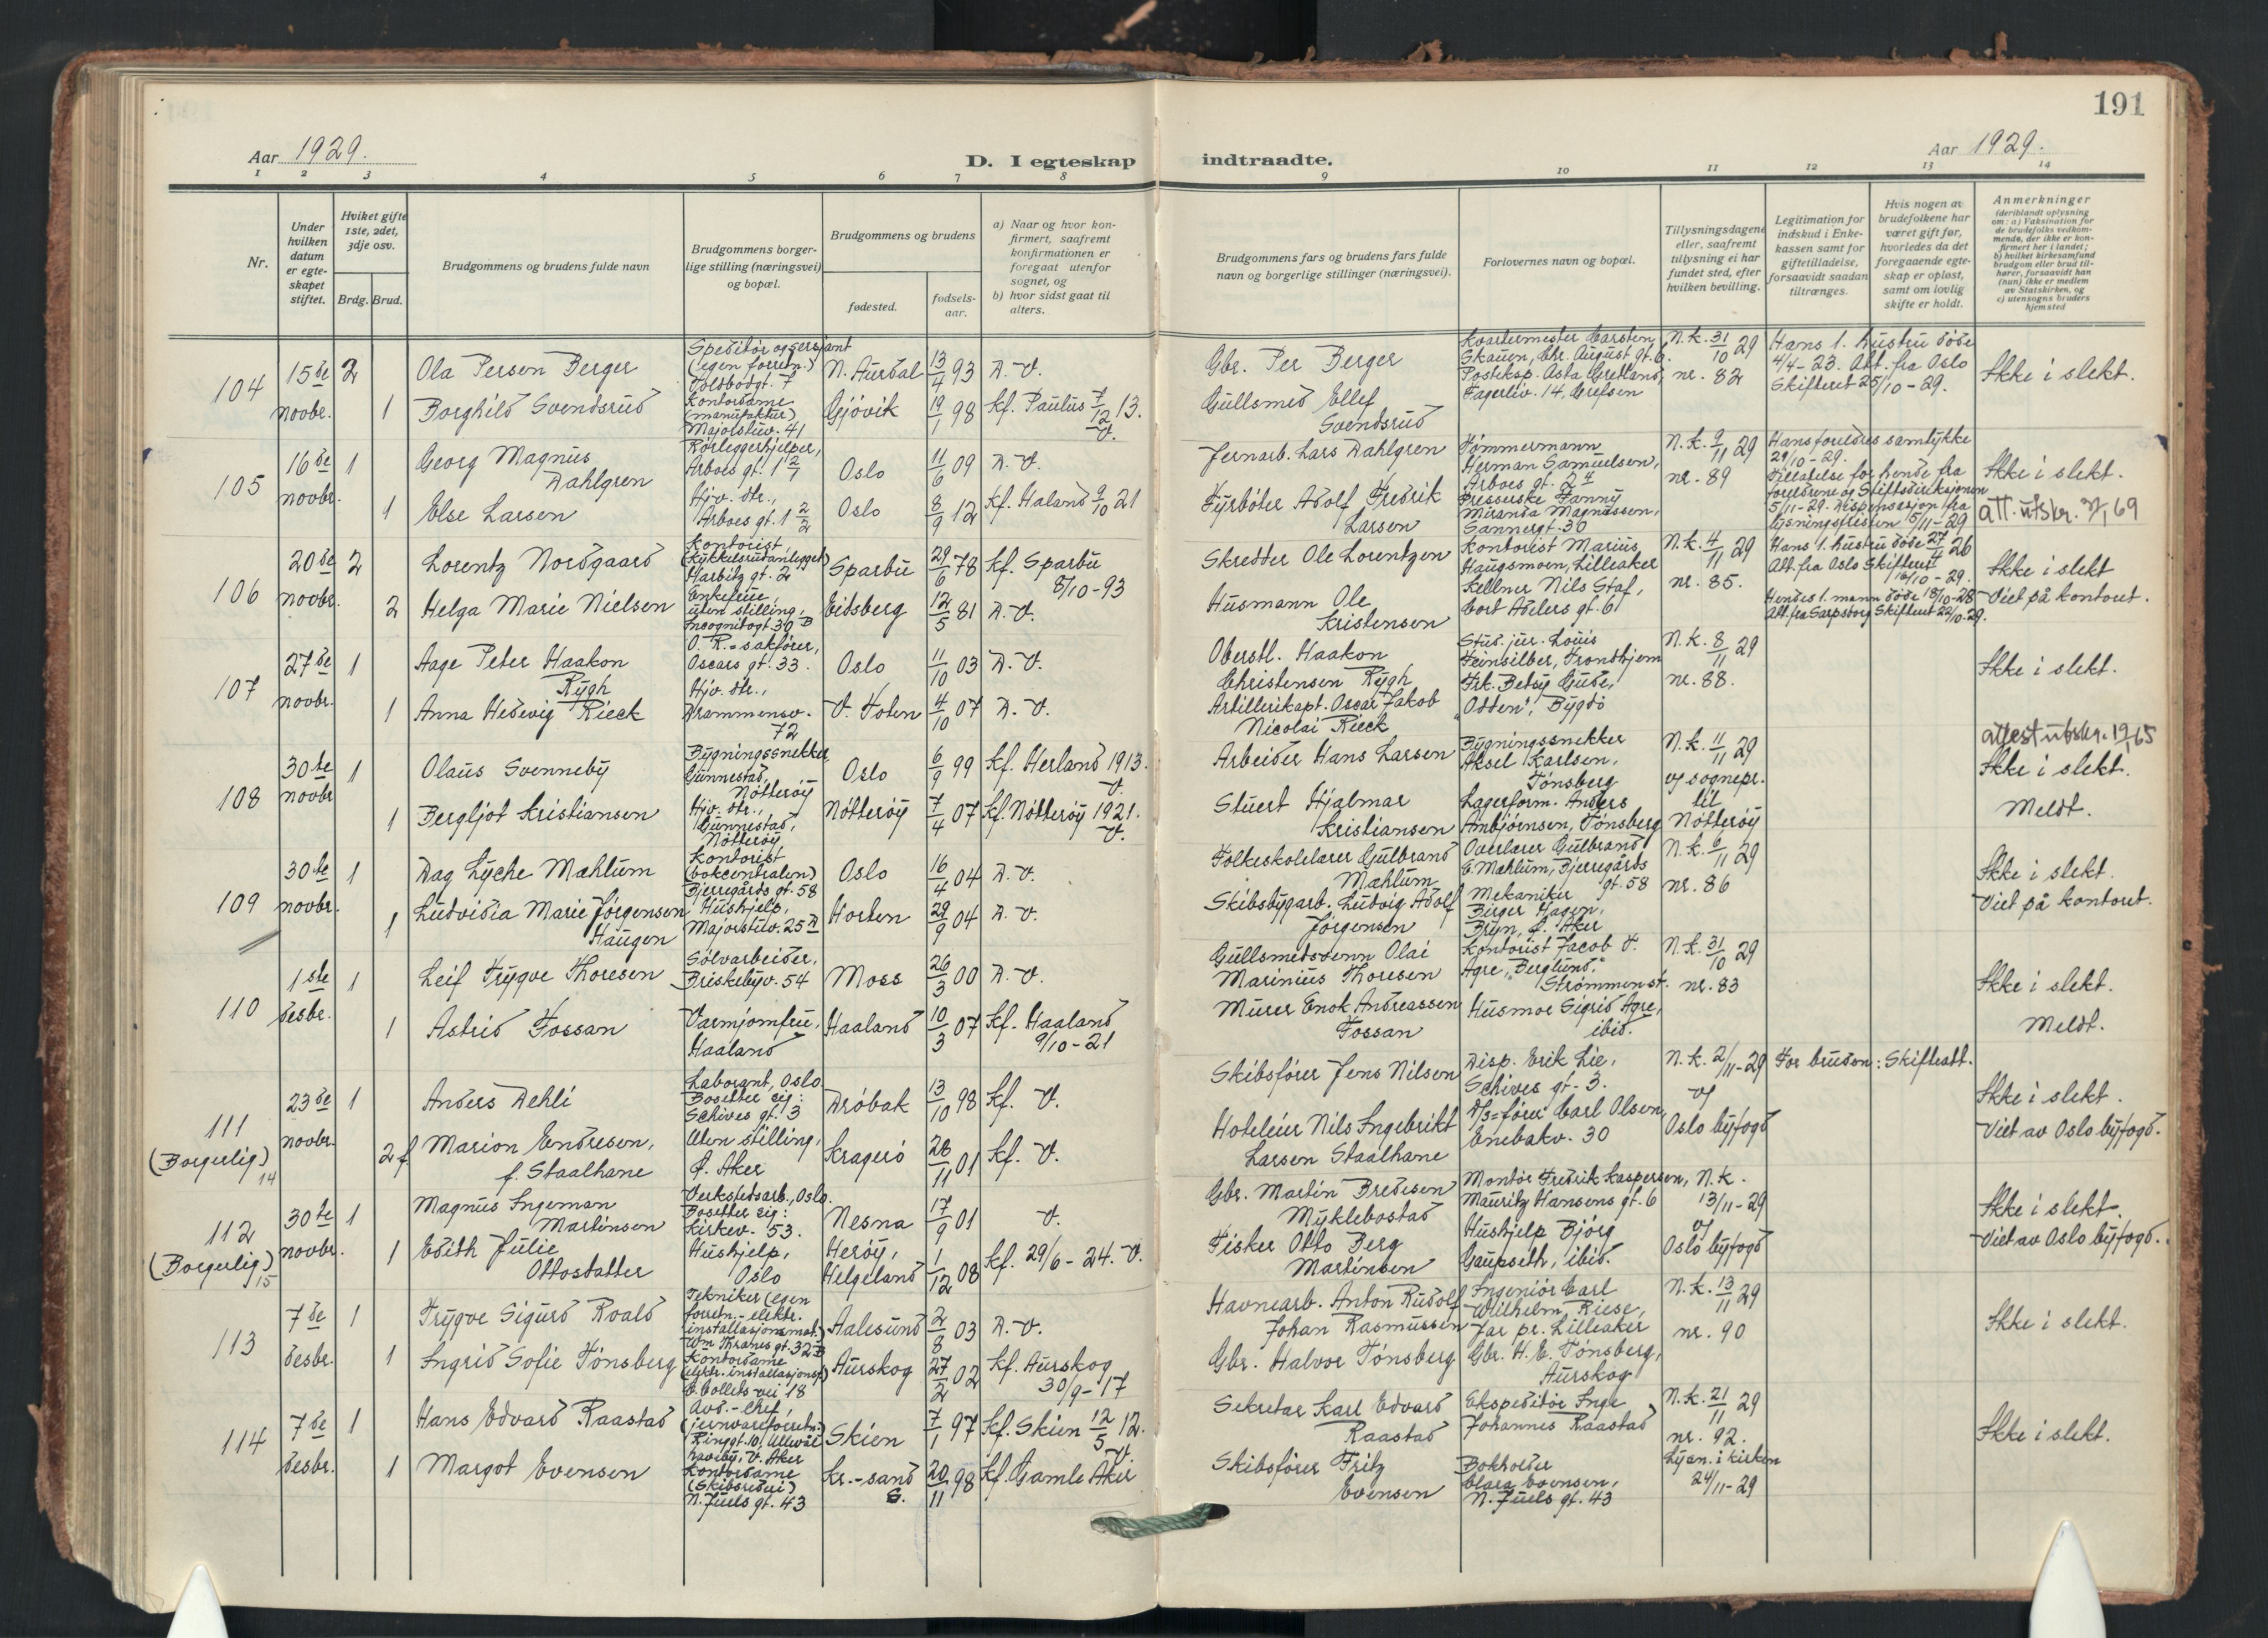 191
Aar 1929.
D. I egteskap indtraadte.
Aar 1929.
1 2 3 4 5 6 7 8 9 10 11 12 13 14
Nr.
Under hvilken datum er egteskapet stiftet.
Hviket gifte 1ste, 2det, 3dje osv.
Brdg. Brud.
Brudgommens og brudens fulde navn
Brudgommens borgerlige stilling (næringsvei) og bopæl.
Brudgommens og brudens
fødested.
fødselsaar.
a) Naar og hvor konfirmert, saafremt konfirmationen er foregaat utenfor sognet, og
b) hvor sidst gaat til alters.
Brudgommens fars og brudens fars fulde navn og borgerlige stillinger (næringsvei).
Forlovernes navn og bopæl.
Tillysningsdagene eller, saafremt tillysning ei har fundet sted, efter hvilken bevilling.
Legitimation for indskud i Enkekassen samt for giftetilladelse, forsaavidt saadan tiltrænges.
Hvis nogen av brudefolkene har været gift før, hvorledes da det foregaaende egteskap er opløst, samt om lovlig skifte er holdt.
Anmerkninger (deriblandt oplysning om: a) Vaksination for de brudefolks vedkommende, der ikke er konfirmert her i landet; b) hvilket kirkesamfund brudgom eller brud tilhører, forsaavidt han (hun) ikke er medlem av Statskirken, og c) utensogns bruders hjemsted
104
15de novbr.
2
Ola Person Berger
Speditør og sersjant (egen forretn.) Toldbodgt. 7
N. Aurdal
13/4 93
D. V.
Gbr. Per Berger
Kvartermester Carsten Skauen, Chr. August gt. 6.
N.k. 31/10 29
nr. 82
Hans 1. hustru døde 4/4-23. Att. fra Oslo Skifterett 25/10-29.
Ikke i slekt.
1
Borghild Svendsrud
Kontordame (manufaktur) Majorstuv. 41
Gjøvik
19/1 98
Kf. Paulus 7/12 13. V.
Gullsmed Ellef Svendsrud
Posteksp. Asta Gretland, Fagerliv. 14, Grefsen
105
16de novbr.
1
Georg Magnus Dahlgren
Rørleggerhjelper, Arboes gt. 1 2/1
Oslo
11/6 09
D. V.
Jernarb. Lars Dahlgren
Tømmermann Herman Samuelsen, Arboes gt. 2 4
N.k. 9/11 29
nr. 89
Hans foreldres samtykke 29/10-29.
Tillatelse for hende fra foreldrene og Stiftsdireksjonen 5/11-29. Dispensasjon fra lysningsfristen 15/11-29
Ikke i slekt.
att. utskr. 7/1 69
1
Else Larsen
Hjv. dtr., Arboes gt. 1 2/2
Oslo
8/9 12
Kf. Haland 9/10 21
Fyrbøter Adolf Fredrik Larsen
Presserske Fanny Miranda Magnussen, Sannergt. 30
106
20de novbr.
2
Lorentz Nordgaard
Kontorist, (Rykkelsrudanlegget) Harbitz gt. 2
Sparbu
29/6 78
Kf. Sparbu 8/10-93
Skredder Ole Lorentzen
Kontorist Marius Haugsmoen, Lilleaker
N.k. 4/11 29
nr. 85.
Hans 1. hustru døde 27/4 26
Att. fra Oslo Skifterett 16/10-29.
Ikke i slekt
Viet på kontoret.
2
Helga Marie Nielsen
Enkefrue, uten stilling, Incognitogt. 30 B
Eidsberg
12/5 81
D. V.
Husmann Ole Kristensen
Kellner Nils Staf, Cort Adelers gt. 6
Hendes 1. mann døde 18/10-28
Att. fra Sarpsborg Skifterett 22/10-29.
107
27de novbr.
1
Aage Peter Haakon Rygh
O. R.-sakfører, Oscars gt. 33.
Oslo
11/10 03
D. V.
Oberstl. Haakon Christensen Rygh
Stud. jur. Louis Feinsilber, Trondhjem
N.k. 8/11 29
nr. 88.
Ikke i slekt.
1
Anna Hedevig Rieck
Hjv. dtr., Drammensv. 72
V. Toten
4/10 07
D. V.
Artillerikapt. Oscar Jakob Nicolai Rieck
Frk. Betsy Gude, "Odden", Bygdø
108
30te novbr
1
Olaus Svenneby
Bygningssnekker, Gunnestad, Nøtterøy
Oslo
6/9 99
Kf. Herland 1913. V.
Arbeider Hans Larsen
Bygningssnekker Aksel Karlsen, Tønsberg
N.k. 11/11 29
v/ sognepr. til Nøtterøy
attest utskr. 19/1 65
Ikke i slekt.
Meldt.
1
Bergljot Kristiansen
Hjv. dtr., Gunnestad, Nøtterøy
Nøtterøy
7/4 07
Kf. Nøtterøy 1921. V.
Stuert Hjalmar Kristiansen
Lagerform. Anders Anbjørnsen, Tønsberg
109
30te novbr.
1
Dag Lyche Mæhlum
Kontorist (bokcentralen) Bjerregårds gt. 58
Oslo
16/4 04
D. V.
Folkeskolelærer Gulbrand Mæhlum
Overlærer Gulbrand E. Mæhlum, Bjerregårds gt. 58
N.k. 6/11 29
nr. 86
Ikke i slekt.
Viet på kontoret.
1
Ludvidia Marie Jørgensen Haugen
Hushjelp, Majorstuv. 25 D
Horten
29/9 04
D. V.
Skibsbygarb. Ludvig Adolf Jørgensen
Mekaniker Birger Hagen, Bryn, Ø. Aker
110
1ste desbr.
1
Leif Trygve Thoresen
Sølvarbeider, Briskebyv. 54
Moss
26/3 00
D. V.
Gullsmedsvenn Olai Marinius Thoresen
Kontorist Jacob T. Agre, "Berglund," Strømmen st.
N.k. 31/10 29
nr. 83
Ikke i slekt.
Meldt.
1
Astrid Fossan
Varmjomfru, Haaland
Haaland
10/3 07
Kf. Haaland 9/10-21
Murer Enok Andreassen Fossan
Husmor Sigrid Agre, ibid.
111
(Borgerlig) 14
23de novbr.
1
Anders Dehli
Laborant, Oslo Bosetter sig: Schives gt. 3
Drøbak
13/10 98
Kf. V.
Skibsfører Jens Nilsen
Disp. Erik Lie, Schives gt. 3.
N.k. 2/11-29
v/ Oslo byfogd
For bruden: Skifteatt.
Ikke i slekt.
Viet av Oslo byfogd.
2 f.
Marion Endresen, f. Staalhane
Uten stilling, Ø. Aker
Kragerø
28/11 01
Kf. V.
Hoteleier Nils Ingebrikt Larsen Staalhane
D/s=fører Carl Olsen, Enebakv. 30
112
(Borgerlig) 15
30te novbr.
1
Magnus Ingeman Martinsen
Verkstedsarb., Oslo. Bosetter sig: Kirkev. 53.
Nesna
17/9 01
V.
Gbr. Martin Bredesen Myklebostad
Montør Fredrik Kaspersen, Mauritz Hansens gt. 6
N.k. 13/11-29
v/ Oslo byfogd
Ikke i slekt.
Viet av Oslo byfogd.
1
Edith Julie Ottosdatter
Hushjelp, Oslo
Herøy, Helgeland
1/12 08
Kf. 29/6-24. V.
Fisker Otto Berg Martinsen
Hushjelp Bjørg Gaupseth, ibid.
113
7de desbr.
1
Trygve Sigurd Roald
Tekniker (egen forretn.- elektr. installasjonsmat.) Wm Thranes gt. 32 B
Aalesund
2/8 03
D. V.
Havnearb. Anton Rudolf Johan Rasmussen
Ingeniør Carl Wilhelm Riese, Jar pr. Lilleaker
N.k. 13/11 29
nr. 90
Ikke i slekt.
1
Ingrid Sofie Tønsberg
Kontordame (elektr. installasjonsf.) C. Colletts vei 18
Aurskog
27/2 02
Kf. Aurskog 30/9-17
Gbr. Halvor Tønsberg
Gbr. H. E. Tønsberg, Aurskog
114
7de desbr.
1
Hans Edvard Raastad
Avd.-chef, (jernvareforretn.) Ringgt. 10, Ullevål haveby, V. Aker
Skien
7/1 97
Kf. Skien 12/5 12. V.
Sekretær Karl Edvard Raastad
Ekspeditør Inge Johannes Raastad
N.k. 21/11 29
nr. 92.
Lysn. i kirken 24/11-29
Ikke i slekt.
1
Margot Evensen
Kontordame (Skibsrederi) N. Juels gt. 43
Kr.-sand S.
20/11 98
Kf. Gamle Aker
Skibsfører Fritz Evensen
Bokholder Clara Evensen, N. Juels gt. 43